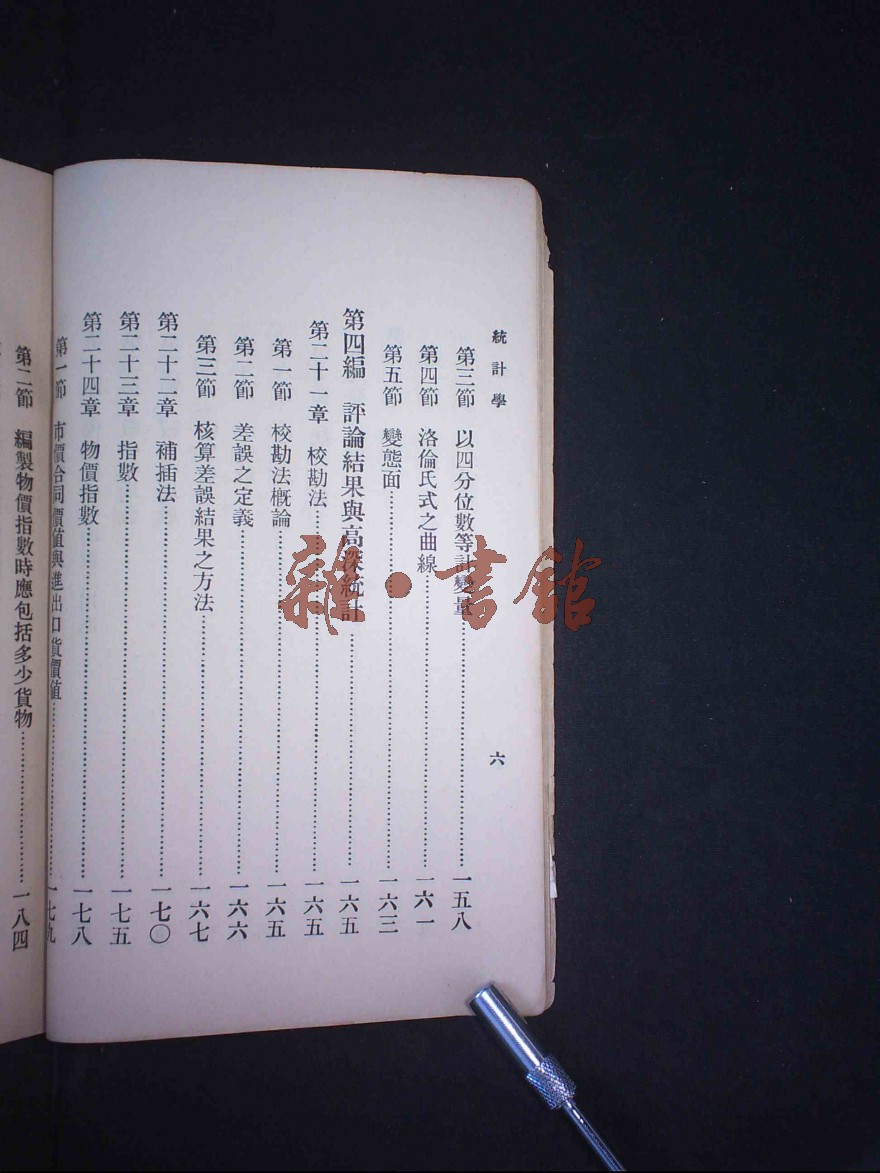 統計學
六
第三節 以四分位數等計變量……一五八
第四節 洛倫氏式之曲線……一六一
第五節 變態面……一六三
第四編 評論結果與高深統計……一六五
第二十一章 校勘法……一六五
第一節 校勘法概論……一六五
第二節 差誤之定義……一六六
第三節 核算差誤結果之方法……一六七
第二十二章 補插法……一七〇
第二十三章 指數……一七五
第二十四章 物價指數……一七八
第一節 市價合同價值與進出口貨價值……一七九
第二節 編製物價指數時應包括多少貨物……一八四
雜·書館